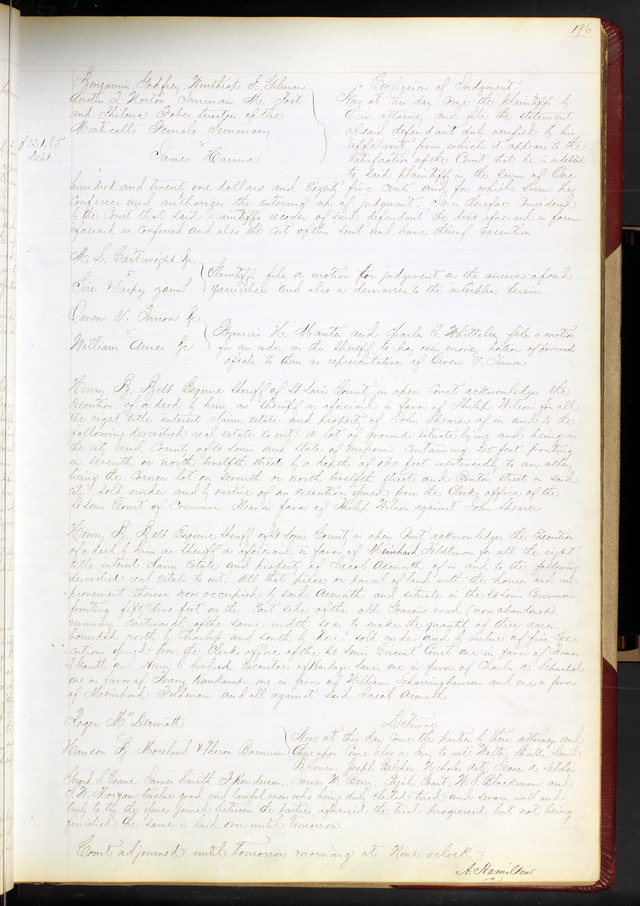 196
Benjamin Godfrey, Winthrop S. Gilman
Austin T. Norton, Truman M. Post
and Philena Fobes trustees of the
Monticello Female Seminary
vs
James Hanna
$121.85
Debt
Confession of Judgment
Now at this day come the plaintiffs by
their attorney and file the statement
of said defendant duly verified by his
affidavit, from which it appears to the
satisfaction of the Court that he is indebted
to said plaintiffs in the sum of One
hundred and twenty one dollars and Eighty five Cents and for which sum he
Confesses and authorizes the entering up of judgment. It is therefore Considered
by the Court that said Plaintiffs recover of said defendant the debt aforesaid in form
aforesaid so Confessed and also the cost of this suit and have thereof Execution
M. S. Cartwright &c
vs
Plaintiffs file a motion for judgment on the answer of said
garnishee and also a demurrer to the interplea herein
Owen V. Timon &c
vs
William Ames &c
H. Manter and Charles C. Whittelsey file a motion
for an order on the Sheriff to pay over money portion of proceeds
of sale to them as representatives of Owen V. Timon
Henry B. Belt Esquire Sheriff of St Louis County in open Court acknowledges the
Execution of a deed by him as Sheriff as aforesaid in favor of Philip Wilson for all
the right title interest claim estate and property of John Shearer of in and to the
following described real estate to wit: A lot of ground situate lying and being in
the city and County of St Louis and State of Missouri Containing 25 feet fronting
on seventh or north twelfth streets by a depth of 130 feet westwardly to an alley
being the Corner lot on Seventh or north twelfth street and Benton street in said
City sold under and by virtue of an execution issued from the Clerks office of the
St Louis Court of Common Pleas in favor of Philip Wilson against John Shearer
Henry B. Belt Esquire Sheriff of St Louis County in open Court acknowledges the Execution
of a deed by him as Sheriff as aforesaid in favor of Meinhard Feldtman for all the right
title interest claim Estate and property of Jacob Asmuth of in and to the following
described real estate to wit: All that piece or parcel of land with the houses and im-
provement thereon now occupied by said Asmuth and situate in the St Louis Common
fronting fifty two feet on the East side of the old Gravois road (now abandoned)
running Eastwardly of the same width so as to make the quantity of three acres
bounded north by and south by sold under and by virtue of five Exe-
cutions issued from the Clerks office of the St Louis Circuit Court one in favor of
and Henry executors of one in favor of Charles
one in favor of one in favor of William and one in favor
of Meinhard Feldtman and all against said Jacob Asmuth
Roger McDermott
vs
Hanson B. Moreland & Theron Barnum
Detinue
Now at this day come the parties by their attorney and
thereupon Come also a Jury to wit: Walter Shields, David
B. Joseph Belcher, Isaac A. Letcher
James Smith, Henderson, James W. Berry, Court, W. S. Blackman and
Morgan twelve good and lawful men who being duly elected tried and sworn well and
truly to try the issues joined between the parties aforesaid the trial progressed but not being
finished the same is laid over until tomorrow
Court adjourned until tomorrow morning at Nine oclock
A. Hamilton